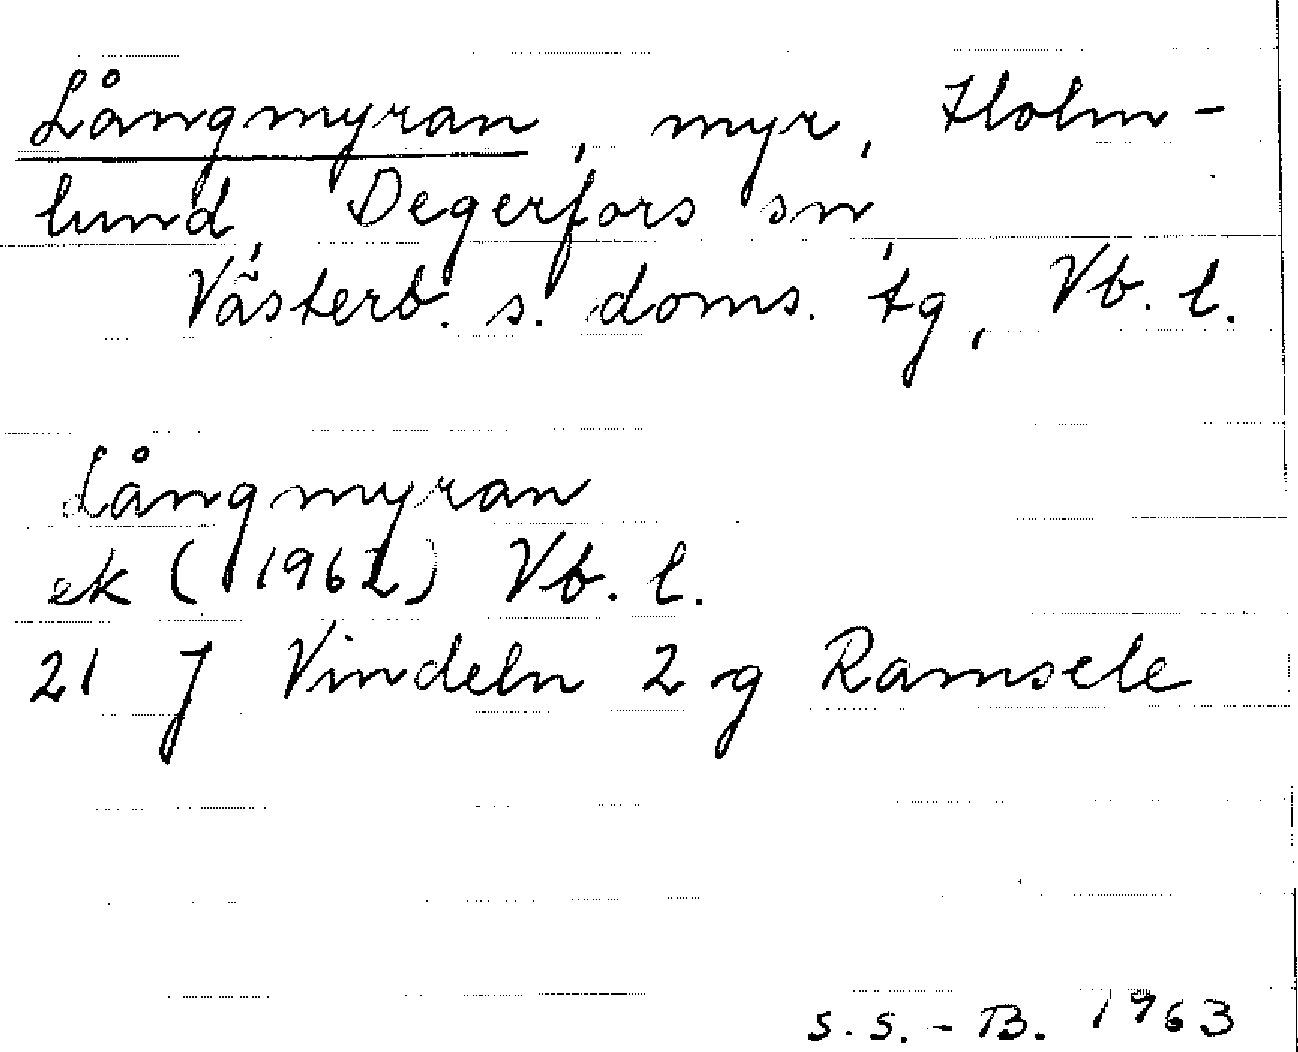 Långmyran, myr, Holm-
lund, Degerfors sn,
Västerb. s. doms. tg, Vb. l.
Långmyran
ek (1962) Vb. l.
21 J Vindeln 2 g Ramsele
S. S. - B. 1963